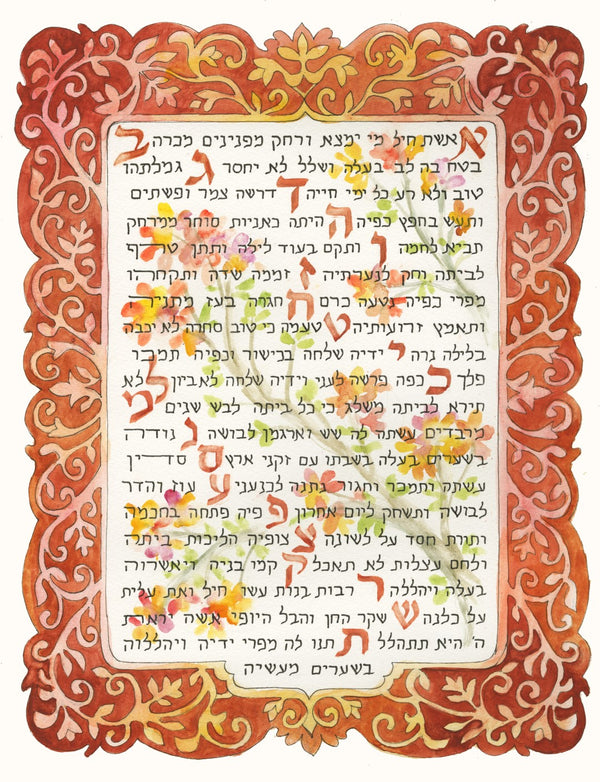 א אשת חיל מי ימצא ורחק מפנינים מכרה ב
בטח בה לב בעלה ושלל לא יחסר ג גמלתהו
טוב ולא רע כל ימי חייה ד דרשה צמר ופשתים
ותעש בחפץ כפיה ה היתה כאניות סוחר ממרחק
תביא לחמה ו ותקם בעוד לילה ותתן טרף
לביתה וחק לנערתיה ז זממה שדה ותקחהו
מפרי כפיה נטעה כרם ח חגרה בעז מתניה
ותאמץ זרועותיה ט טעמה כי טוב סחרה לא יכבה
בלילה נרה י ידיה שלחה בכישור וכפיה תמכו
פלך כ כפה פרשה לעני וידיה שלחה לאביון ל לא
תירא לביתה משלג כי כל ביתה לבש שנים מ
מרבדים עשתה לה שש וארגמן לבושה נ
בשערים בעלה בשבתו עם זקני ארץ ס סדין
עשתה ותמכר וחגור נתנה לכנעני ע עוז והדר
לבושה ותשחק ליום אחרון פ פיה פתחה בחכמה
ותורת חסד על לשונה צ צופיה הליכות ביתה
ולחם עצלות לא תאכל ק קמו בניה ויאשרוה
בעלה ויהללה ר רבות בנות עשו חיל ואת עלית
על כלנה ש שקר החן והבל היופי אשה יראת
ה' היא תתהלל ת תנו לה מפרי ידיה ויהללוה
בשערים מעשיה